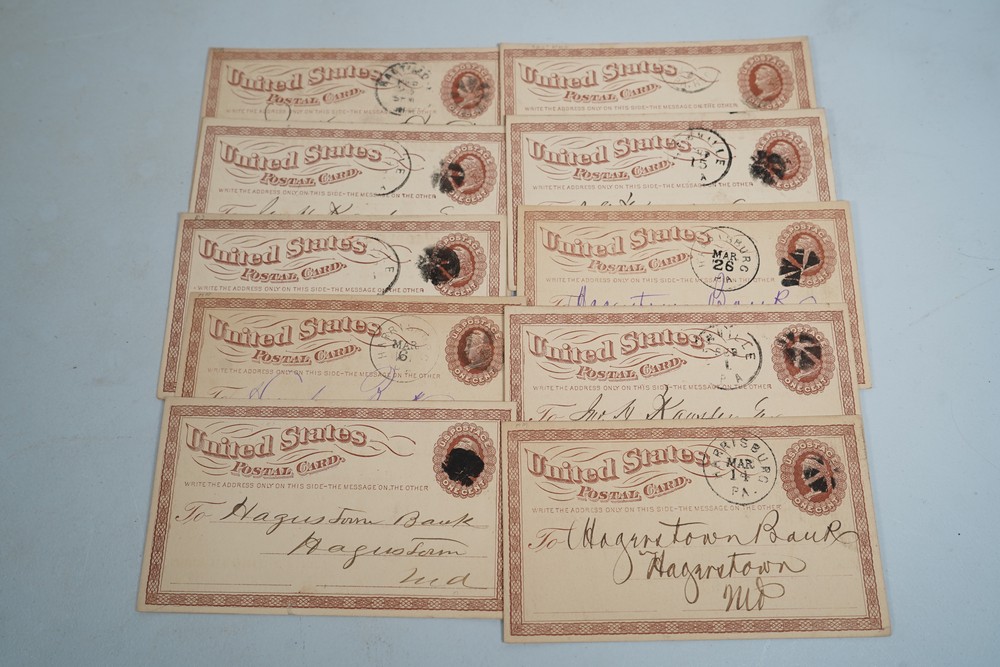 United States
POSTAL CARD.
WRITE THE ADDRESS ONLY ON THIS SIDE-THE MESSAGE ON THE OTHER
U.S. POSTAGE
ONE CENT
United States
POSTAL CARD.
WRITE THE ADDRESS ONLY ON THIS SIDE-THE MESSAGE ON THE OTHER
ONE CENT
United States
POSTAL CARD.
WRITE THE ADDRESS ONLY ON THIS SIDE-THE MESSAGE ON THE OTHER
U.S. POSTAGE
ONE CENT
To
United States
POSTAL CARD.
15
WRITE THE ADDRESS ONLY ON THIS SIDE-THE MESSAGE ON THE OTHER
ONE CENT
United States
POSTAL CARD.
WRITE THE ADDRESS ONLY ON THIS SIDE-THE MESSAGE ON THE OTHER
U.S. POSTAGE
ONE CENT
United States
POSTAL CARD.
MAR
26
PA
WRITE THE ADDRESS ONLY ON THIS SIDE-THE MESSAGE ON THE OTHER
U.S. POSTAGE
ONE CENT
To Hagerstown Bank
United States
POSTAL CARD.
MAR
6
WRITE THE ADDRESS ONLY ON THIS SIDE-THE MESSAGE ON THE OTHER
U.S. POSTAGE
ONE CENT
To
United States
POSTAL CARD.
PA
WRITE THE ADDRESS ONLY ON THIS SIDE-THE MESSAGE ON THE OTHER
U.S. POSTAGE
ONE CENT
To Jno M
United States
POSTAL CARD.
WRITE THE ADDRESS ONLY ON THIS SIDE-THE MESSAGE ON THE OTHER
U.S. POSTAGE
ONE CENT
To Hagerstown Bank
Hagerstown
Md
United States
POSTAL CARD.
HARRISBURG
MAR
14
PA.
WRITE THE ADDRESS ONLY ON THIS SIDE-THE MESSAGE ON THE OTHER
U.S. POSTAGE
ONE CENT
To Hagerstown Bank
Hagerstown
Md